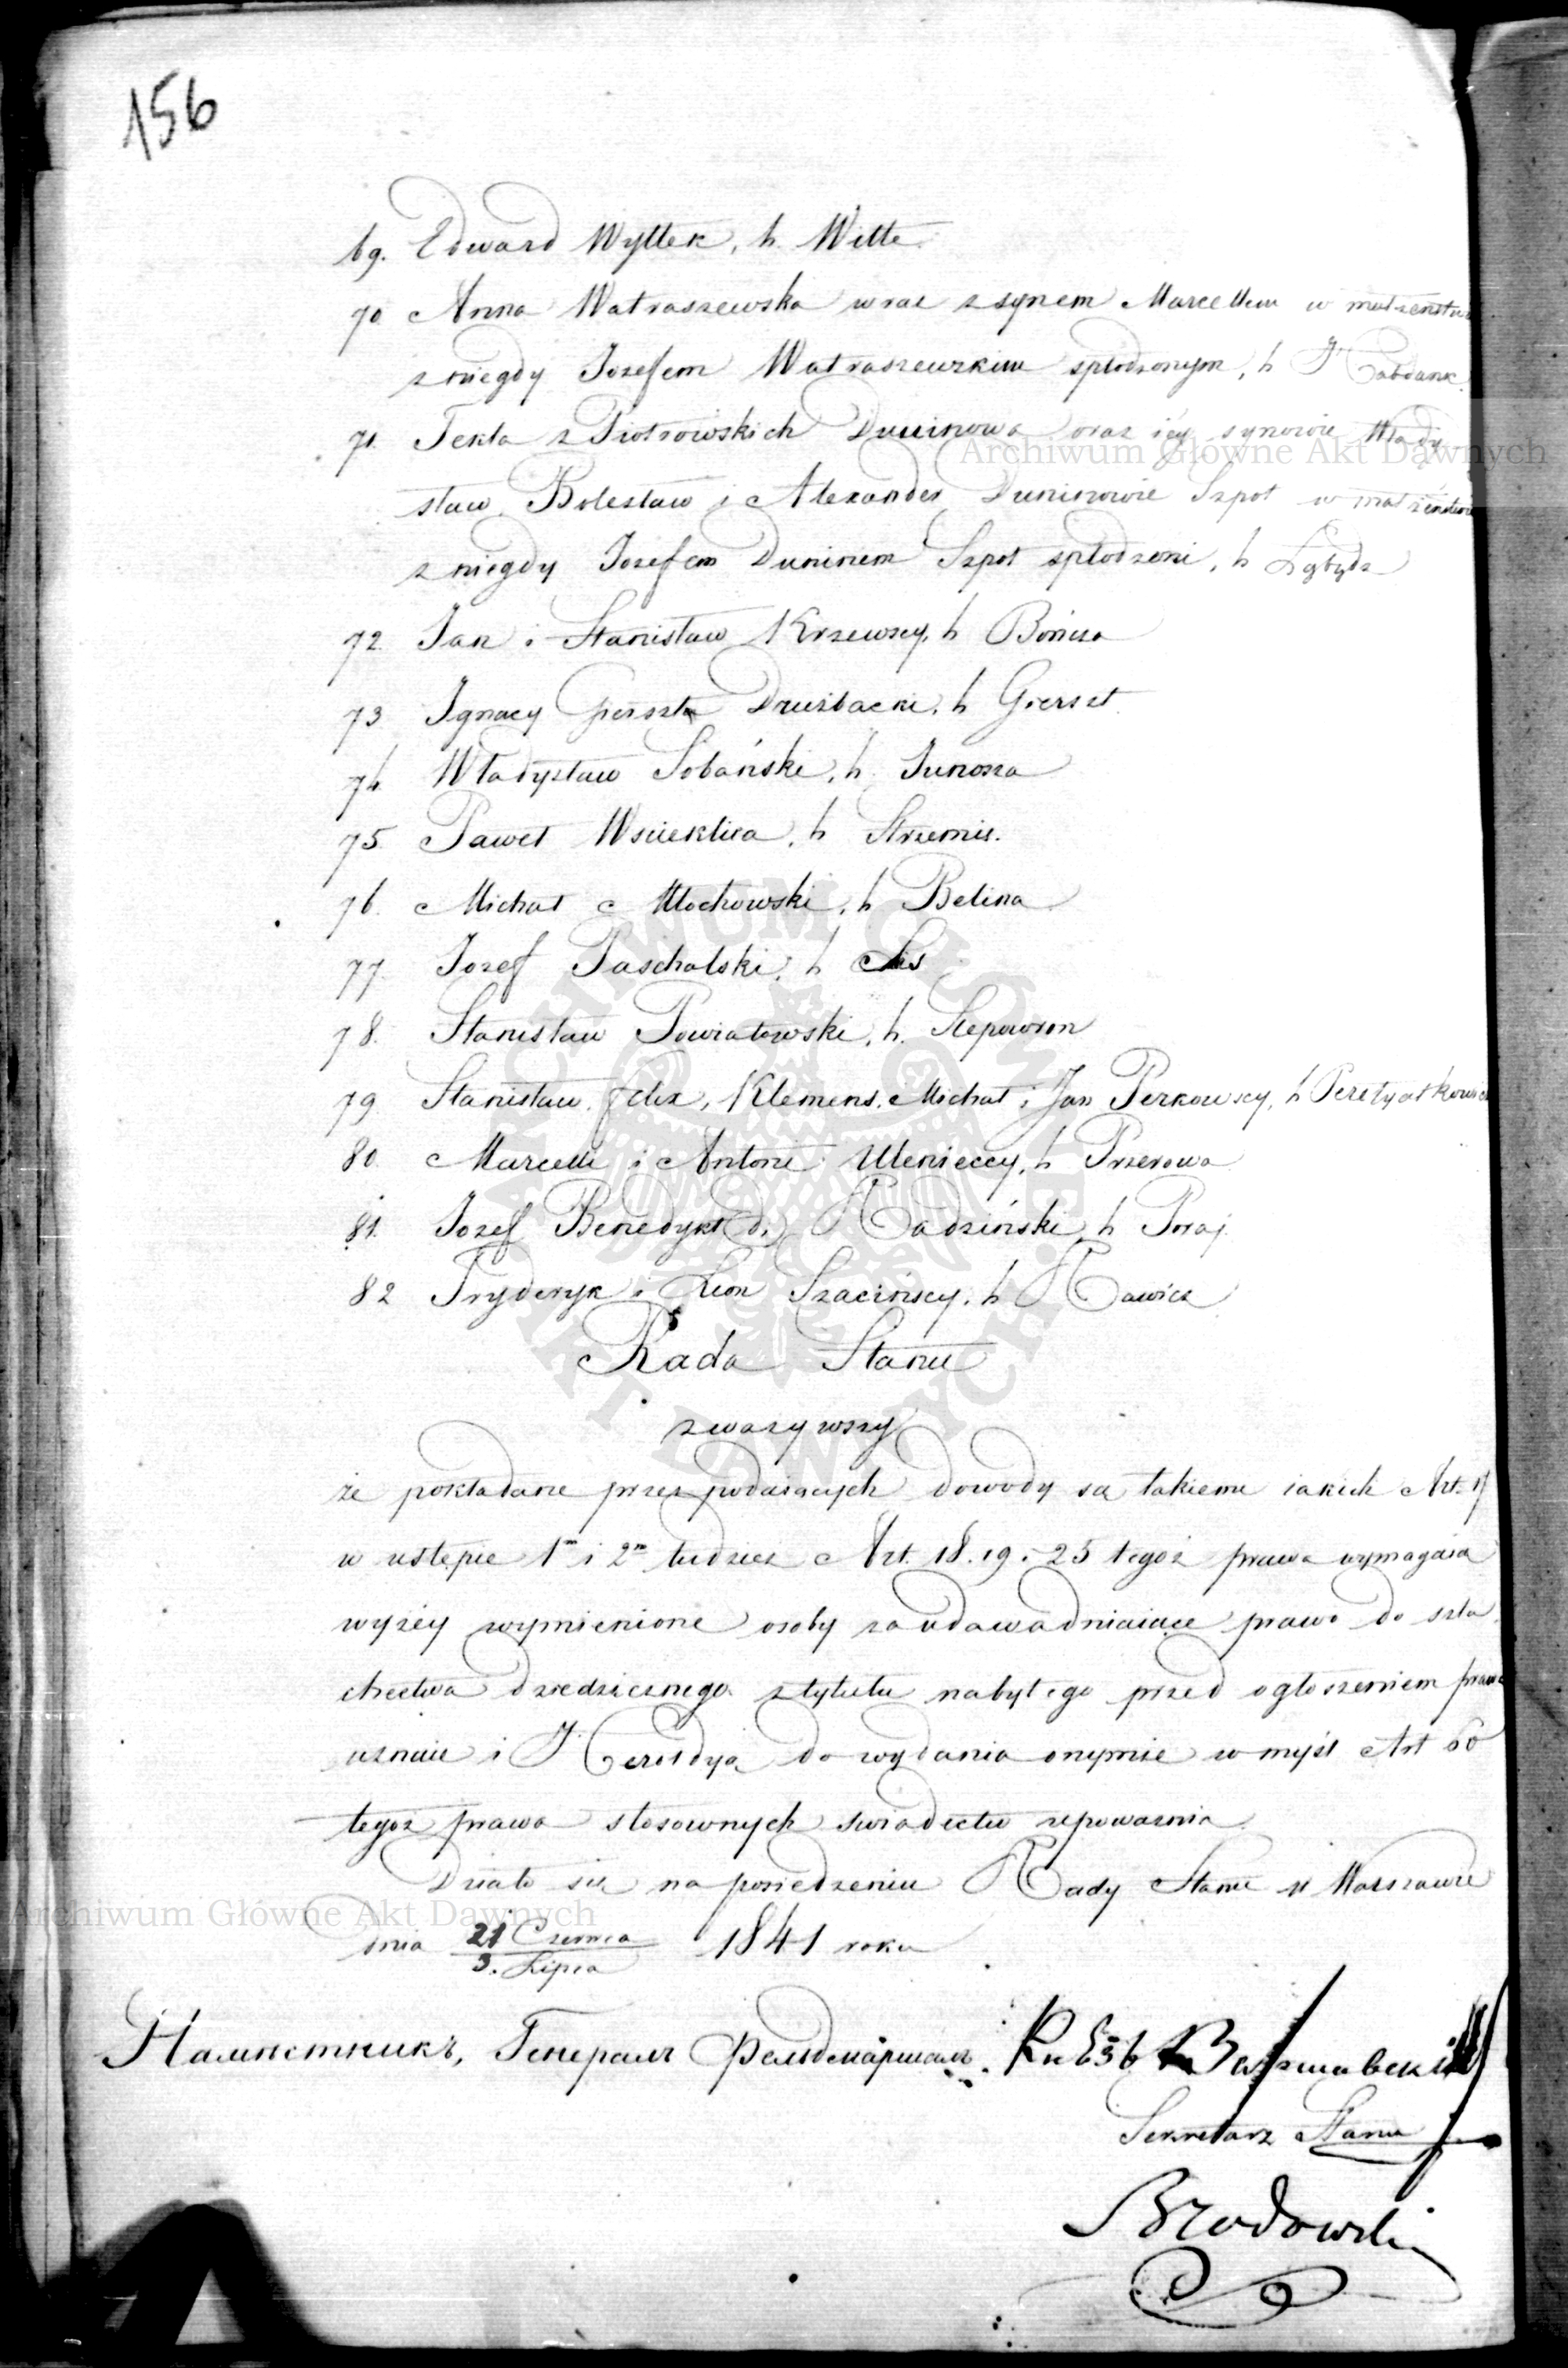 156
69. Edward Wyttek, h. Witte.
70 Anna Watraszewska wraz z synem Marcellem w małżenstwie
z niegdy Jozefem Watraszewskim spłodzonym, h Habdank.
71. Tekla z Piotrowskich Duninowa oraz iéy synowie Włady
sław, Bolesław i Alexander Duninowie Szpot w małżeństwie
z niegdy Jozefem Duninem Szpot spłodzeni, h Łabędz
72. Jan i Stanisław Krzewscy, h Bończa
73 Ignacy Gierszt Drużbacki, h Gierszt.
74. Władysław Sobański, h. Junosza
75. Paweł Wscieklica, h Strzemie.
76. Michał Młochowski, h Belina
77. Jozef Paschalski, h Lis
78. Stanisław Powiatowski, h. Slepowron
79 Stanisław, Felix, Klemens, Michał i Jan Perkowscy, h Peretyatkowicz
80. Marcelli i Antoni Ulenieccy, h Przerowa
81. Jozef Benedykt Radziński, h Poraj
82 Fryderyk i Leon Szacińscy, h Rawicz
Rada Stanu
zważywszy
że pokładane przez podaiących dowody są takiemi iakich Art. 17
w ustępie 1m i 2m tudzież Art. 18. 19 i 25 tegoż prawa wymagaią
wyżéy wymienione osoby za udawadniaiące prawo do szla
chectwa dziedzicznego z tytułu nabytego przed ogłoszeniem prawa
uznaie i Heroldyą do wydania onymże w myśl Art 60
tegoż prawa stosownych swiadectw upoważnia.
Działo się na posiedzeniu Rady Stanu w Warszawie
dnia 21 Czerwca 1841 roku
3. Lipca
Намѣстникъ, Генералъ Фельдмаршалъ. Князь Варшавскій
Sekretarz Stanu
Brodowski
Archiwum Główne Akt Dawnych
Archiwum Główne Akt Dawnych